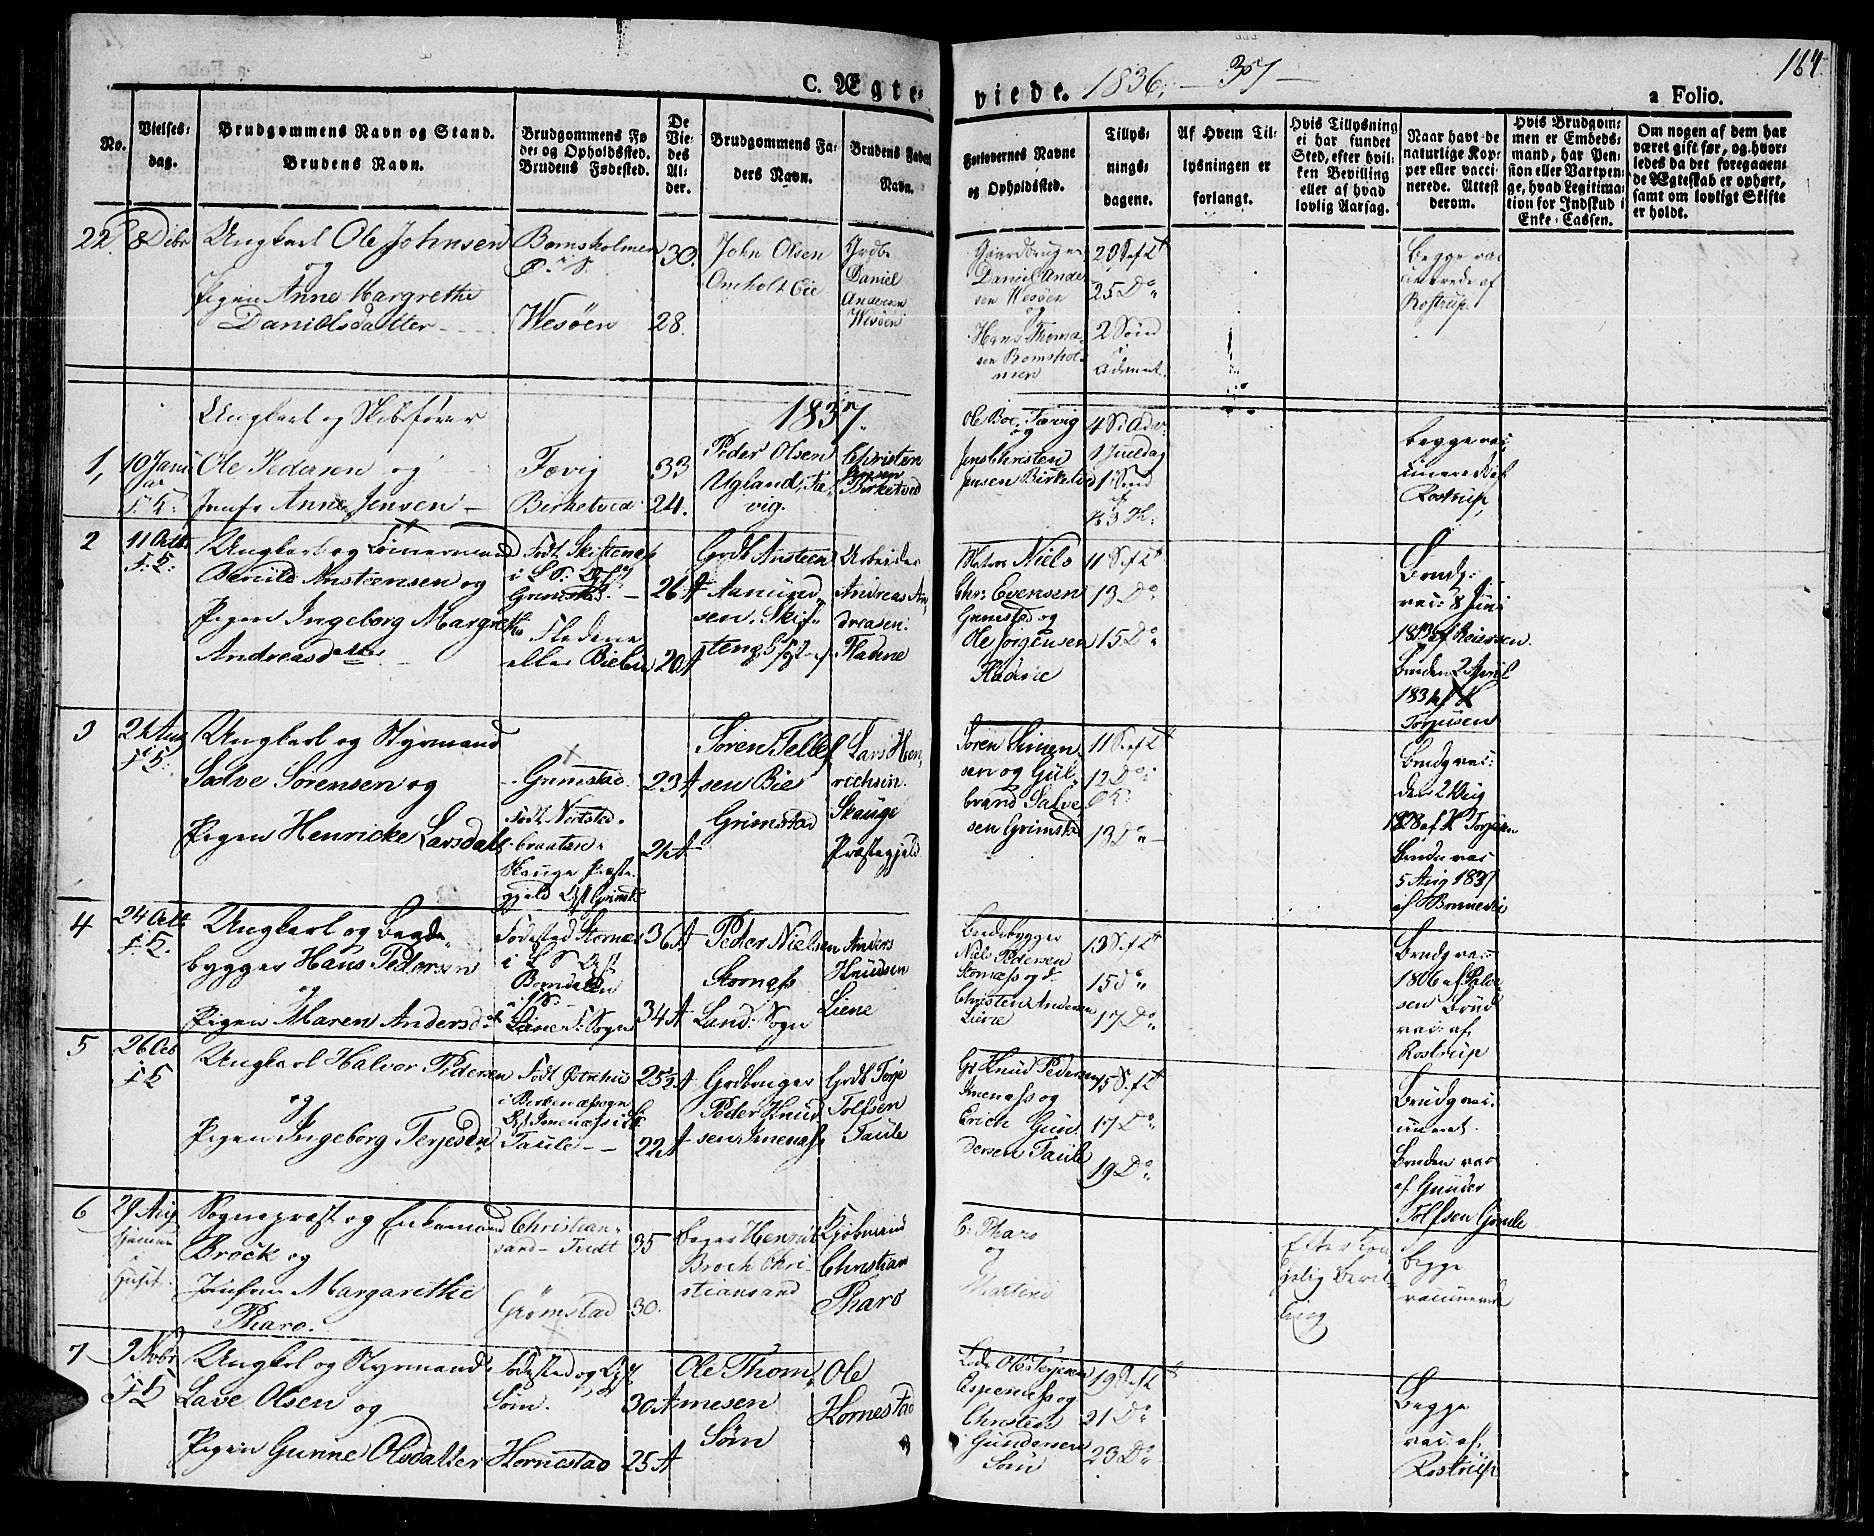 C. Ægte-
viede. 1836, — 37 —
164.
a Folio.
No.
Vielses-
dag.
Brudgommens Navn og Stand.
Brudens Navn.
Brudgommens Fø
de- og Opholdssted.
Brudens Fødested.
De
Vie-
des
Al-
der.
Brudgommens Fa-
ders Navn.
Brudens Faders
Navn.
Forlovernes Navne
og Opholdssted.
Tillys-
nings-
dagene.
Af Hvem Til-
lysningen er
forlangt.
Hvis Tillysning
ei har fundet
Sted, efter hvil-
ken Bevilling
eller af hvad
lovlig Aarsag.
Naar havt de
naturlige Kop-
per eller vacci-
nerede. Attest
derom.
Hvis Brudgom-
men er Embeds-
mand, har Pen-
sion eller Vartpen-
ge, hvad Legitima-
tion for Indskud i
Enke-Cassen.
Om nogen af dem har
været gift før, og hvor-
ledes da det foregaaen-
de Ægteskab er ophørt,
samt om lovligt Skifte
er holdt.
22 8 Decbr
Ungkarl Ole Johnsen
og
Pigen Anne Margrethe
Danielsdatter
Bomsholmen
Wesöen
30.
28.
John Olsen
Omholt Eie
Grdbr
Daniel
Andersen
Wesöen
Gaardbruger
Daniel Ander
sen Wesöen
og
Hans Thoma-
sen Bomshol-
men
25 Do
2 Sönd
i
Advent.
Begge vac
cinerede af
Rostrup.
1837.
1, 10 Janu
ar
F.K.
Ungkarl og Skibsförer
Ole Pedersen og
Jomfr Anne Jensen
Fævig
Birketved
33
24.
Peder Olsen
Ugland, Fæ-
vig.
Christen
Jensen
Birketved
Ole Boe, Fævig
og
Jens Christen
Jensen Birketved
4 S. Adv:
1 Juuldag
1 Sönd
begge vac-
cinerede af
Rostrup
2 11 Octb
F.K.
Ungkarl og Tömermand
Beruld Anstensen og
Pigen Ingeborg Margrethe
Andreasdatter
Födt Skiftenes
i L S:
Grimstad
Fladene
eller Bieben
26 A
20 A
Grdb Austeen
Aamund-
sen, Skif-
tenes
Arbeider
Andreas An-
dreasen
Fladene
Matros Niels
Chr: Evensen
Grimstad og
Ole Jorgensen
Fladene
11 S. ef. Tr
13 Do
15 Do
Brudg:
vac: 8 Juni
Bruden 2 April
Torjusen
3 21 Aug
F.K.
Ungkarl og Styrmand
Salve Sörensen og
Pigen Henricke Larsdatt
Grimstad
födt Nordsted-
braaten
Hauge Præste-
gjeld
23 A
21 A
Sören Tellef-
sen Bie
Grimstad
Lars Hen-
richsen
Skauge
Præstegjeld
Sören Simen-
sen og Gul-
brand Salve-
sen Grimstad
11 S. ef. Tr
12 Do
13 Do
Brudg vac:
den 2 Aug
1828 af K Torjusen
Bruden vac
5 Aug 1837
4 24 Octb
F.K.
Ungkarl og Baade-
bygger Hans Pedersen
og
Pigen Maren Andersd
Födested Stornæs
i L S
36 A
34 A
Peder Nielsen
Stornæs
Land: Sogn
Anders
Knudsen
Liene
Baadebygger
Niels Pedersen
Stornæs og
Christen Andersen
Liene
13 S. ef. Tr
15 do
17 Do
Brudg vac:
1806 af Salve-
sen Brud
vac: af
Rostrup
5 26 Oct
F.K.
Ungkarl Halvor Pedersen
og
Pigen Ingeborg Terjesd
i Birkenæs sogn
Taule
25½ A
22 A
Grdbruger
Peder Knud-
sen Imenæs
Grdb Terje
Tolfsen
Taule
Gr Knud Pedersen
Imenæs og
Erich Gun-
dersen Taule
15 S. ef. Tr
17 Do
19 Do
Brudg vac-
cineret.
Bruden vac
af Gunder
Tolfsen
6 29 Aug
hjemme
i
Huset.
Sognepræst og Enkemand
Brock og
Jomfrue Margarethe
Pharo.
Christian-
sand - Födt
Grömstad
35
30.
Broch Chri-
stiansand
Kjöbmand
Christian
Pharo
C. Pharo
og
Martini
Efter Kon-
gelig Bevil-
ling
begge
vaccinerede
7 9 Nvbr
F.K.
Ungkarl og Styrmand
Lave Olsen og
Pigen Gunne Olsdatter
Födested og
Söm.
Hornestad
30 A
25 A
Ole Thom-
mesen
Söm
Ole
Hornestad
Ole Terjesen
Espenæs og
Christen
Gundersen
Söm
19 S. ef. Tr
21 Do
23 Do
Begge
vac: af
Rostrup